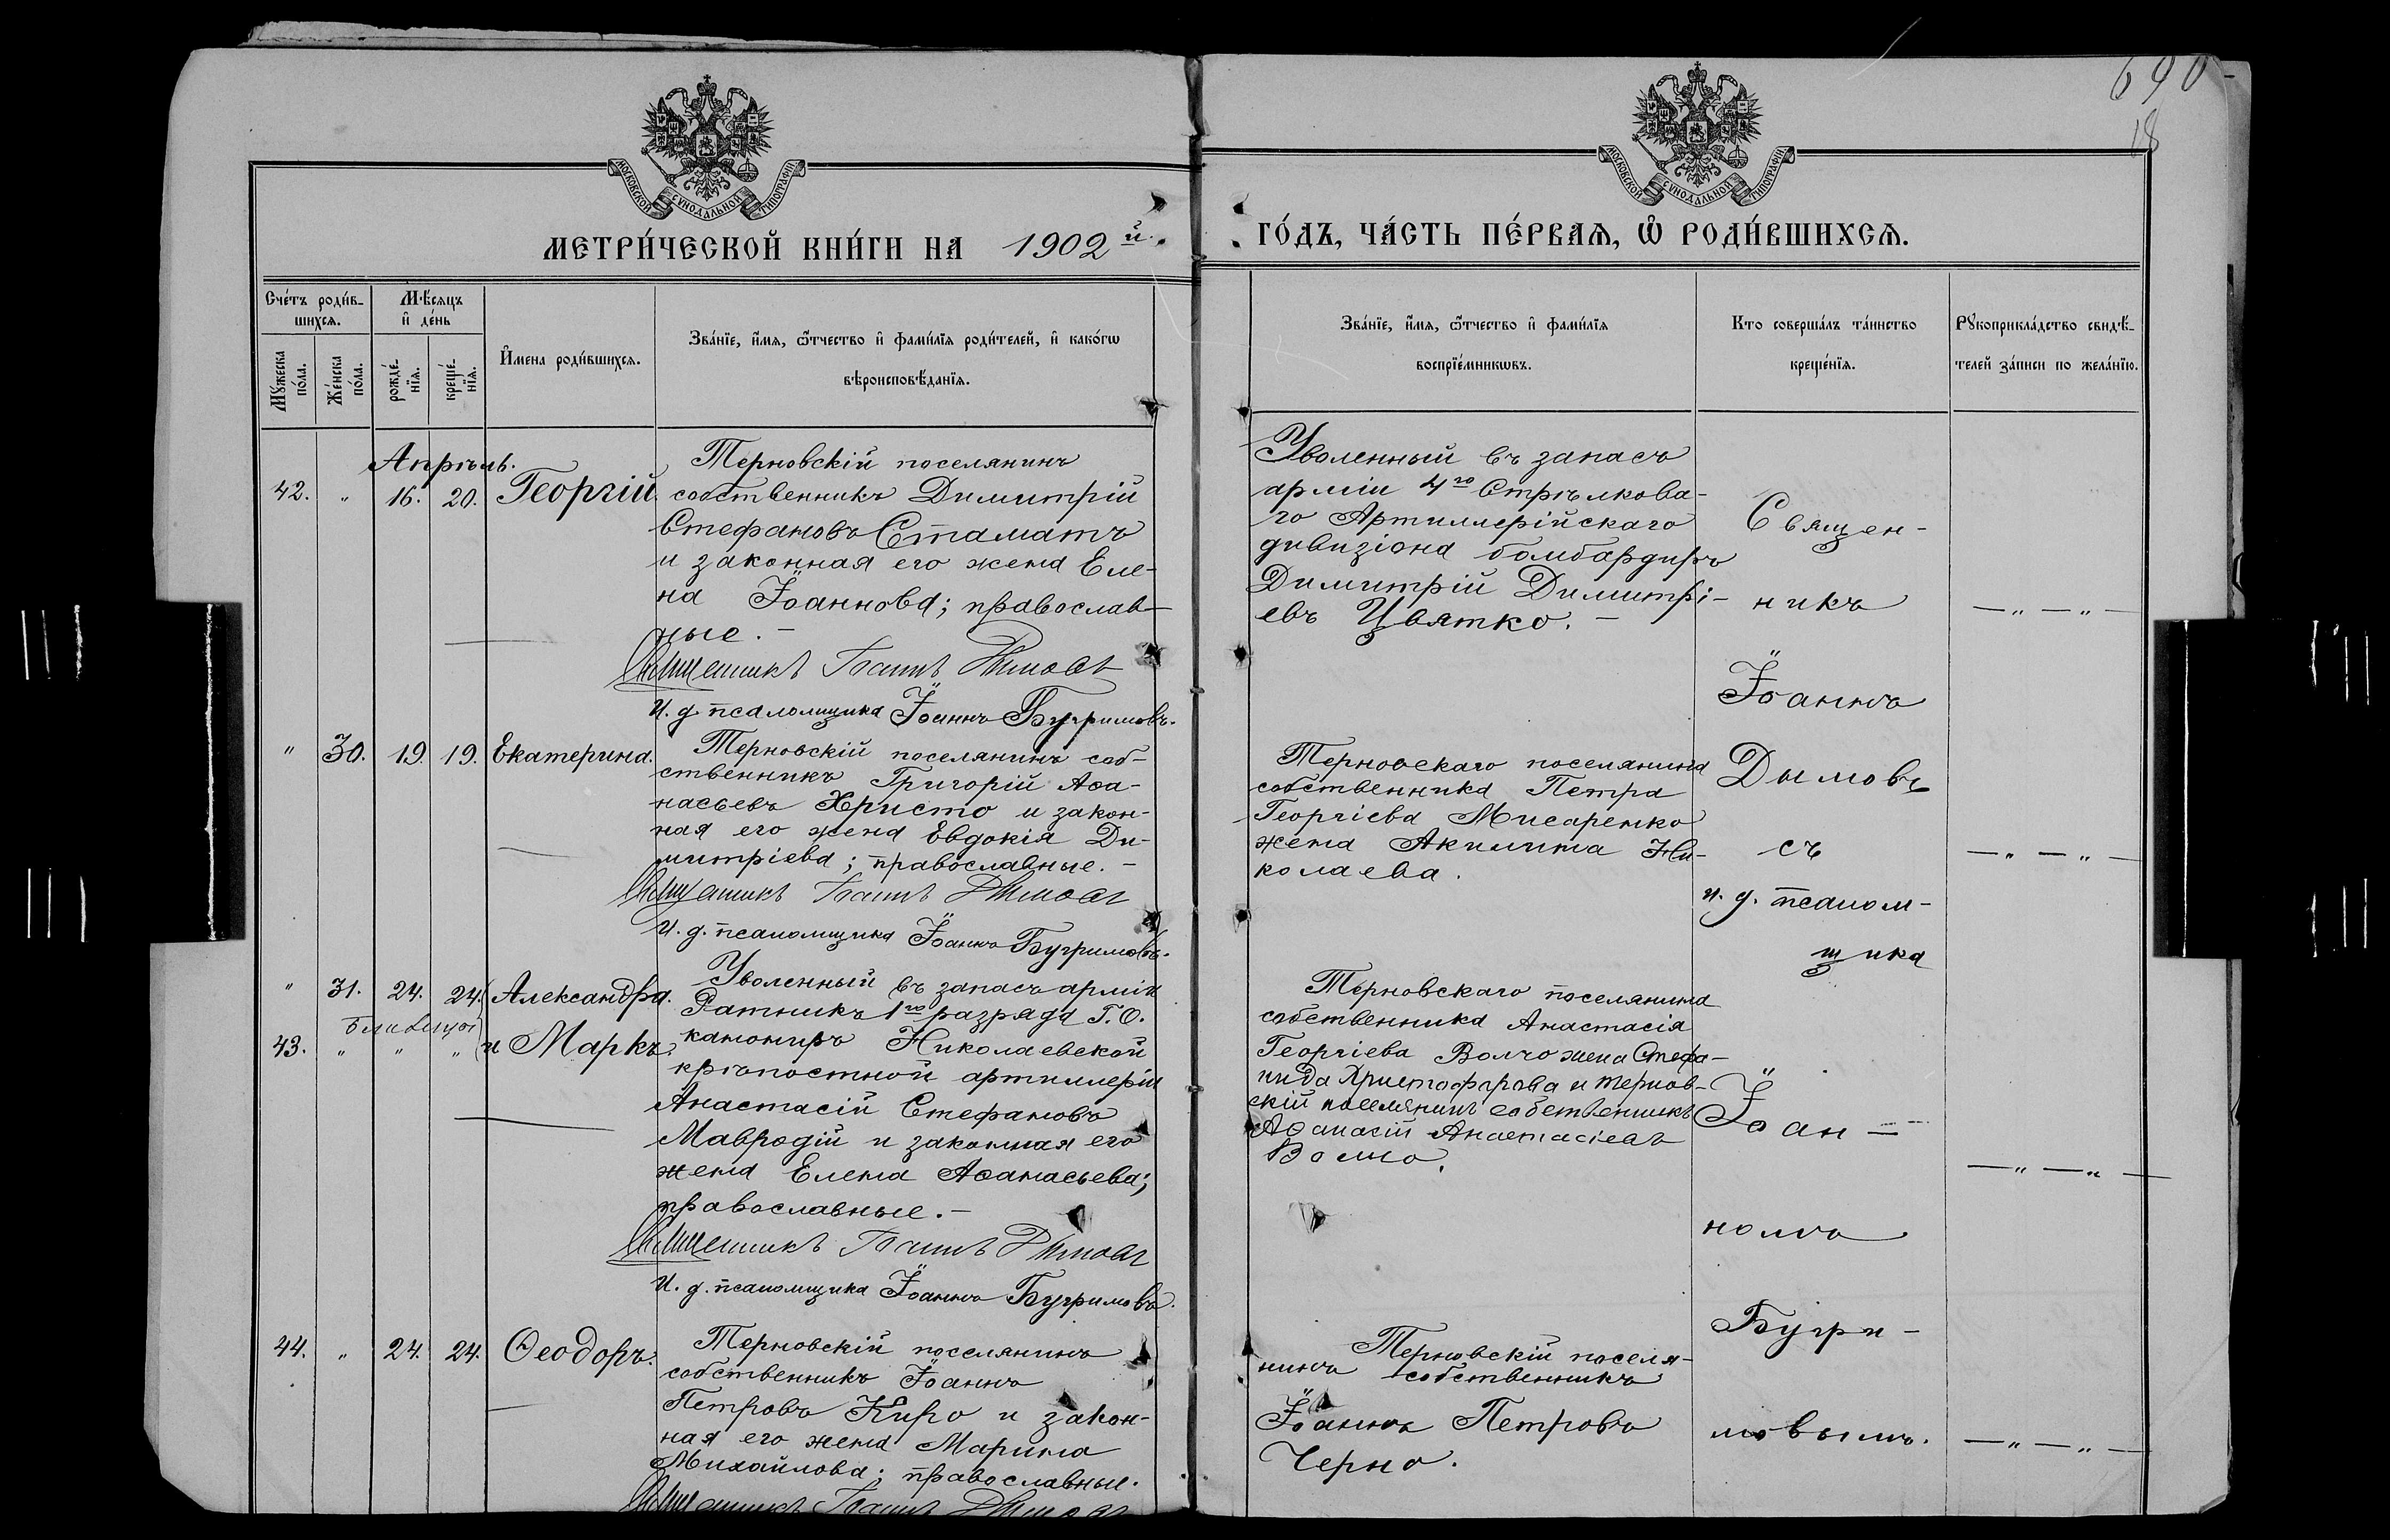 690
18
МОСКОВСКОЙ СѴНОДАЛЬНОЙ ТИПОГРАФІИ
МОСКОВСКОЙ СѴНОДАЛЬНОЙ ТИПОГРАФІИ
МЕТРИ́ЧЕСКОЙ КНИ́ГИ НА 1902й.
ГО́ДЪ, ЧА́СТЬ ПЕ́РВАѦ, Ѡ РОДИ́ВШИХСѦ.
Сче́тъ роди́в-
шихсѧ.
Мꙋ́жеска по́ла.
Же́нска по́ла.
Мѣ́сѧцъ
и҆ де́нь
рожде́-нїѧ.
креще́-нїѧ.
И҆мена роди́вшихсѧ.
Зва́нїе, и҆́мѧ, ѻ҆́тчество и҆ фами́лїѧ роди́телей, и҆ како́гѡ
вѣроисповѣ́данїѧ.
Зва́нїе, и҆́мѧ, ѻ҆́тчество и҆ фами́лїѧ
воспрїе́мникѡвъ.
Кто соверша́лъ та́инство
креще́нїѧ.
Рꙋкоприкла́дство свидѣ́-
телей за́писи по жела́нїю.
Апрѣль.
42. " 16. 20. Георгій
Терновскій поселянинъ
собственникъ Димитрій
Стефановъ Стаматъ
и законная его жена Еле-
на Іоаннова; православ-
ные. –
Священникъ Іоаннъ Дымовъ
И. д. псаломщика Іоаннъ Бугримовъ.
Уволенный въ запасъ
арміи 4го Стрѣлкова-
го Артиллерійскаго
дивизіона бомбардиръ
Димитрій Димитрі-
евъ Цвятко. –
" 30. 19. 19. Екатерина.
Терновскій поселянинъ соб-
ственникъ Григорій Аѳа-
насьевъ Христо и закон-
ная его жена Евдокія Ди-
митріева; православные. –
Священникъ Іоаннъ Дымовъ
И. д. псаломщика Іоаннъ Бугримовъ.
Терновскаго поселянина
собственника Петра
Георгіева Писаренко
жена Акилина Ни-
колаева.
" 31. 24. 24. Александра.
близнцы
43. " " " и Маркъ.
Уволенный въ запасъ арміи
Ратникъ 1го разряда Г. О.
канониръ Николаевской
крѣпостной артиллеріи
Анастасій Стефановъ
Мавродій и законная его
жена Елена Аѳанасьева;
православные. –
Священникъ Іоаннъ Дымовъ
И. д. псаломщика Іоаннъ Бугримовъ.
Терновскаго поселянина
собственника Анастасія
Георгіева Волчо жена Стефа-
нида Христофорова и тернов-
скій поселянинъ собственникъ
Аѳанасій Анастасіевъ
Волчо.
44. " 24. 24. Ѳеодоръ.
Терновскій поселянинъ
собственникъ Іоаннъ
Петровъ Киро и закон-
ная его жена Марина
Михайлова; православные.
Священникъ Іоаннъ Дымовъ
Терновскій поселя-
нинъ собственникъ
Іоаннъ Петровъ
Черно.
Священ-
никъ
Іоаннъ
Дымовъ
съ
и. д. псалом-
щика
Іоан-
номъ
Бугри-
мовымъ.
— " — " —
— " — " —
— " — " —
— " — " —